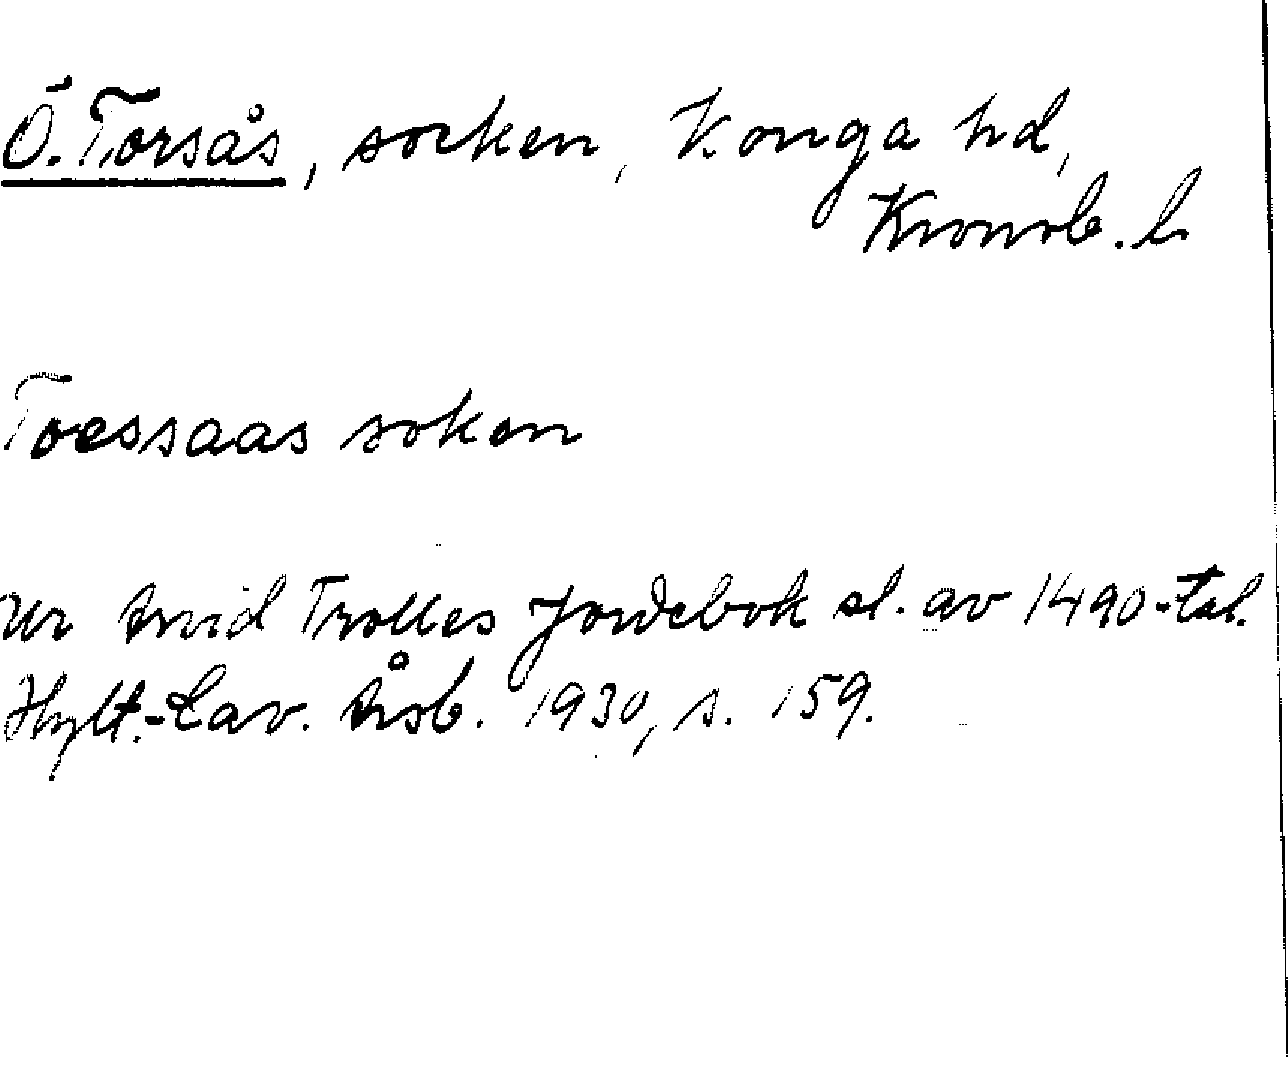 Ö. Torsås, socken, Konga hd,
Kronob. l.
Toessaas soken
Ur Arvid Trolles Jordebok sl. av 1490-tal.
Hylt.-Cav. Årsb. 1930, s. 159.